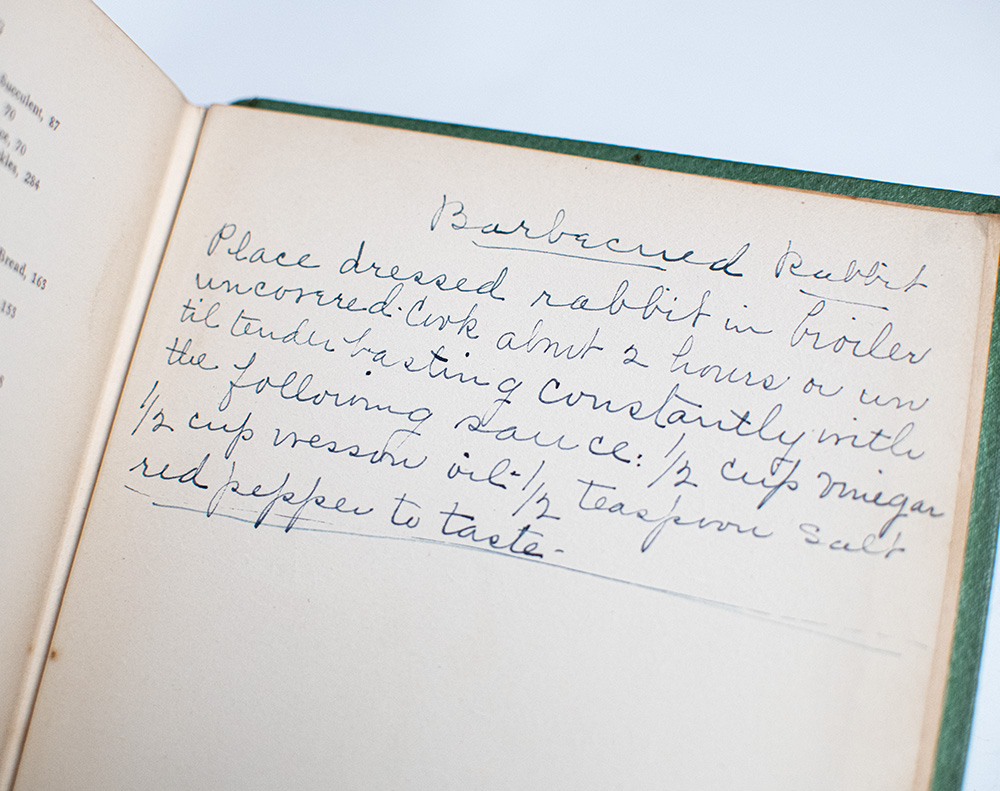 Succulent, 87
70
70
284
Bread, 163
153
Barbecued Rabbit
Place dressed rabbit in broiler
uncovered. Cook about 2 hours or un
til tender basting constantly with
the following sauce: 1/2 cup vinegar
1/2 cup wesson oil - 1/2 teaspoon salt
red pepper to taste -